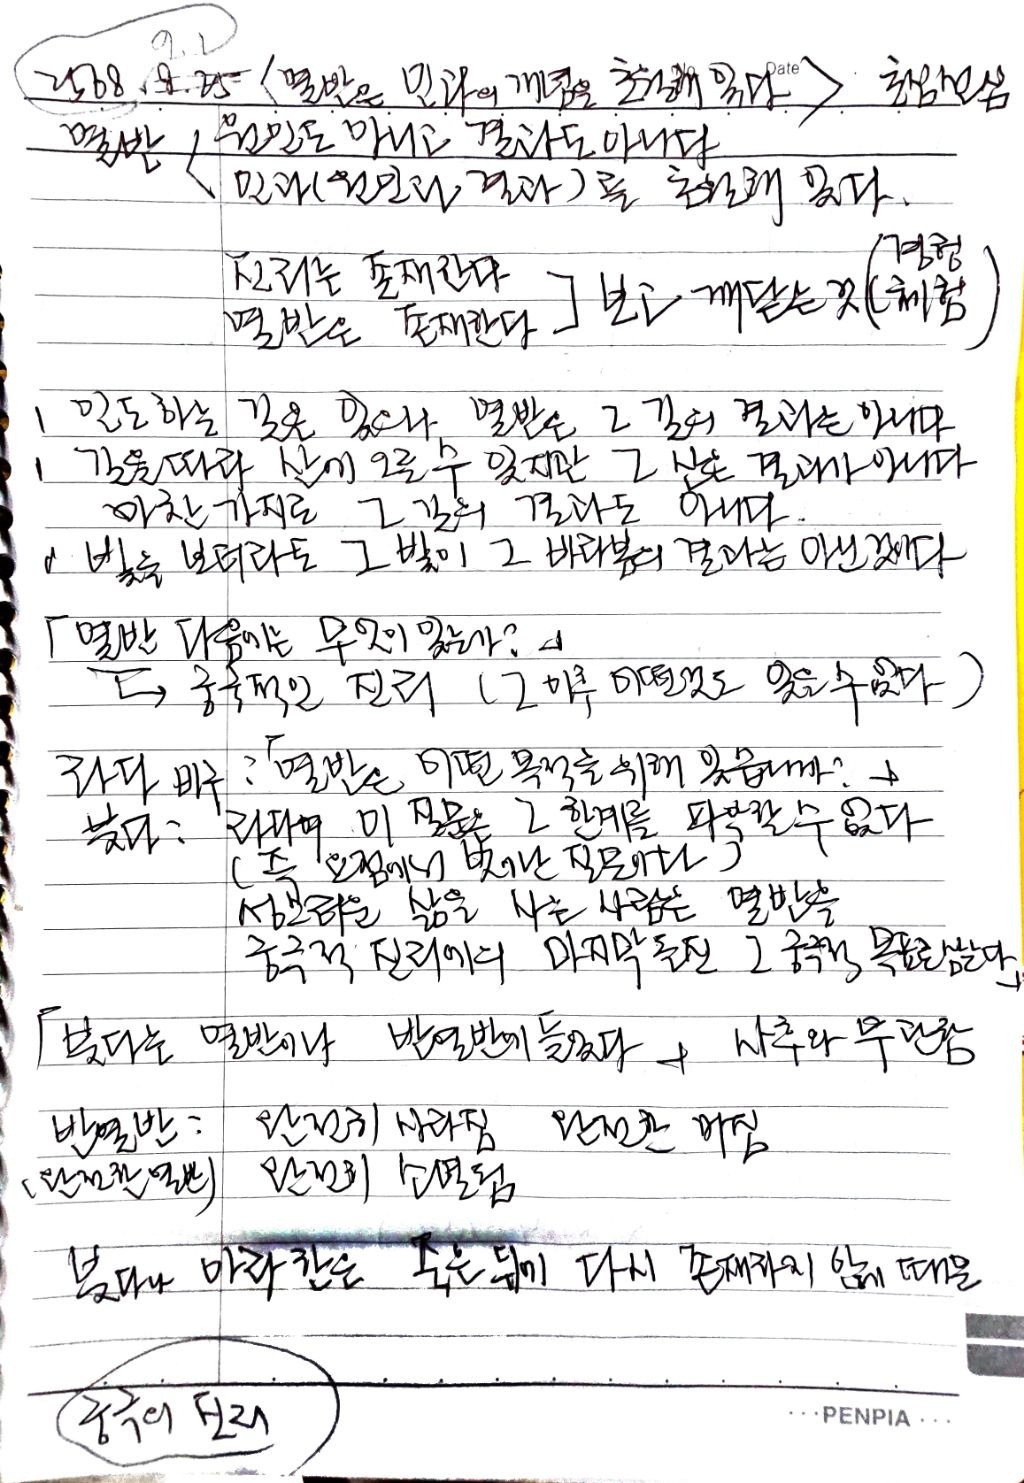 9. 1
2568. 8. 25 <열반은 인과의 개념을 초월해 있다> 초심
Date
열반 < 원인도 아니고 결과도 아니다
인과(원인과 결과)를 초월해 있다.
진리는 존재한다
열반은 존재한다 ] 보고 깨닫는 것 (경험 체험)
1 인도하는 길은 있으나 열반은 그 길의 결과는 아니다
1 길을 따라 산에 오를 수 있지만 그 산은 결과가 아니다
마찬가지로 그 길의 결과도 아니다.
빛을 보더라도 그 빛이 그 바라봄의 결과는 아닌것이다
「열반 다음에는 무엇이 있는가?」
→ 궁극적인 진리 (그 이후 어떤것도 있을 수 없다)
라다 비구 : 「열반은 어떤 목적을 위해 있읍니까?」
붓다 : 라다여 이 질문은 그 한계를 파악할 수 없다
(즉 요점에서 벗어난 질문이다)
성스러운 삶을 사는 사람은 열반을
궁극적 진리에의 마지막 돌진 그 궁극적 목표로 삼는다」
「붓다는 열반이나 반열반에 들었다」 사후와 무관함
반열반 : 완전히 사라짐 완전한 꺼짐
(완전한 열반) 완전히 소멸됨
붓다나 아라한은 죽은 뒤에 다시 존재하지 않기 때문
궁극의 진리
PENPIA